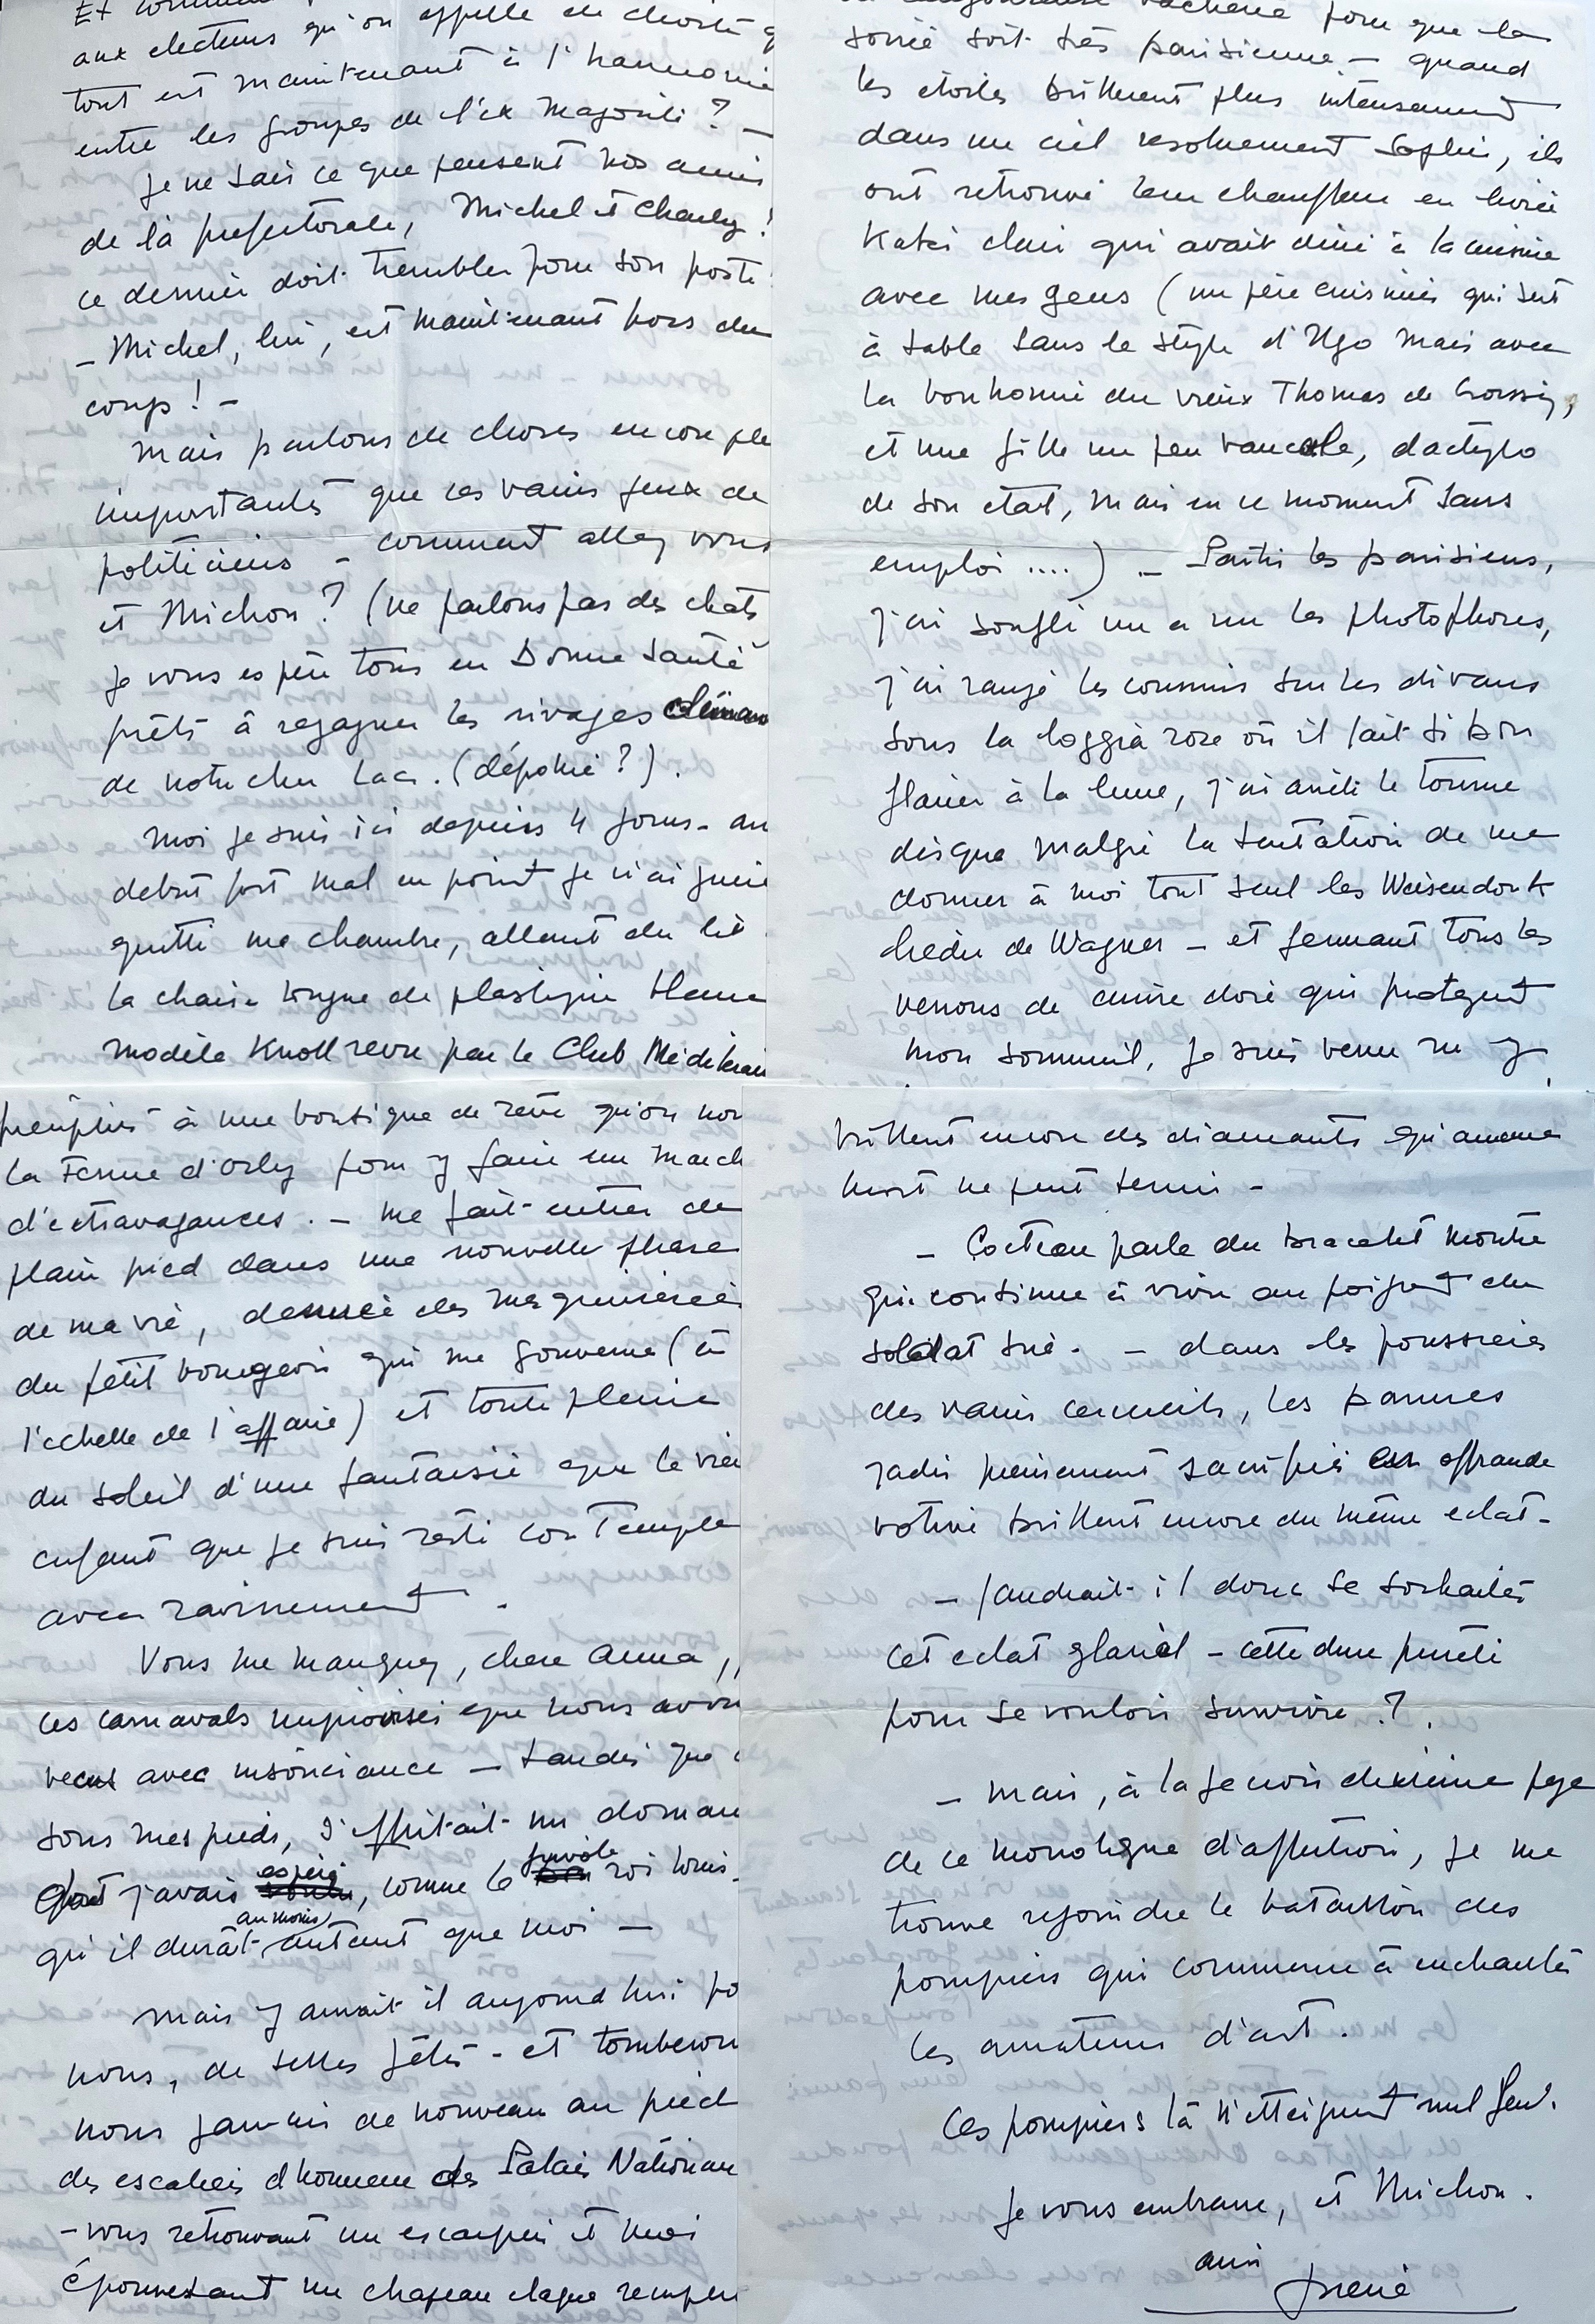 Et comment
aux electeurs qu'on appelle en choeur q
tout est maintenant à l'harmonie
entre les groupes de l'ex Majorité ? –
je ne sais ce que pensent nos amis
de la prefectorale, Michel et Charly !
ce dernier doit trembler pour son poste
– Michel, lui, est maintenant hors du
coup ! –
Mais parlons de choses encore plu
importantes que ces vains jeux de
politiciens – comment allez vous
et Michou ? (ne parlons pas des chats
je vous espère tous en bonne santé
prêts à regagner les rivages
de notre cher Lac. (dépollué ?).
Moi je suis ici depuis 4 jours – au
debut fort mal en point je n'ai guère
quitté ma chambre, allant du lit
la chaise longue de plastique blanc
modèle Knoll revu par le Club Méditerran
la soirée soit très parisienne – quand
les étoiles brillèrent plus intensement
dans un ciel resolument Saphir, ils
ont retrouvé leur chauffeur en livrée
Kaki clair qui avait diné à la cuisine
avec mes gens (un père cuisinier qui sert
à table sans le style d'Ugo mais avec
la bonhomie du vieux Thomas de
et une fille un peu bancale, dactylo
de son etat, mais en ce moment sans
emploi ....) – Partis les parisiens,
j'ai soufflé un a un les photophores,
j'ai rangé les coussins sur les divans
sous la loggia rose où il fait si bon
flaner à la lune, j'ai arrêté le tourne
disque malgré la tentation de me
donner à moi tout seul les Weisendonk
lieder de Wagner – et fermant tous les
verrous de cuivre doré qui protegent
mon sommeil, je suis venu m'y
à une boutique de rêve qu'on nom
la Ferme d'Orly pour y faire un march
d'extravagances. – me fait entrer de
plain pied dans une nouvelle phase
de ma vie, denuée des mesquineries
du petit bourgeois qui me gouverne (à
l'echelle de l'affaire) et toute pleine
du soleil d'une fantaisie que le viei
enfant que je suis resté contemple
avec ravissement.
Vous me manquez, chere Anna,
ces carnavals improvisés que nous avon
vecus avec insouciance – tandis que
sous mes pieds, s'effritait un domain
dont j'avais espéré, comme le frivole roi Louis
qu'il durât au moins autant que moi –
Mais y aurait il aujourd'hui po
nous, de telles fêtes – et tomberon
nous jamais de nouveau au pied
des escaliers d'honneur des Palais Nationau
– vous retrouvant un escarpin et moi
époussetant un chapeau claque rempli
brillent encore des diamants qu'aucune
mort ne peut ternir –
– Cocteau parle du bracelet montre
qui continue à vivre au poignet du
soldat tué. – dans les poussieres
des vains cercueils, les parures
jadis pieusement sacrifiées en offrande
votive brillent encore du même eclat –
– faudrait-il donc se souhaiter
cet eclat glacial – cette dure pureté
pour se vouloir survivre ?.
– mais, à la je crois dixième page
de ce monologue d'affection, je me
trouve rejoindre le bataillon des
pompiers qui commence à enchanter
les amateurs d'art.
Ces pompiers là n'etteignent nul feu !
je vous embrasse, et Michou.
ami